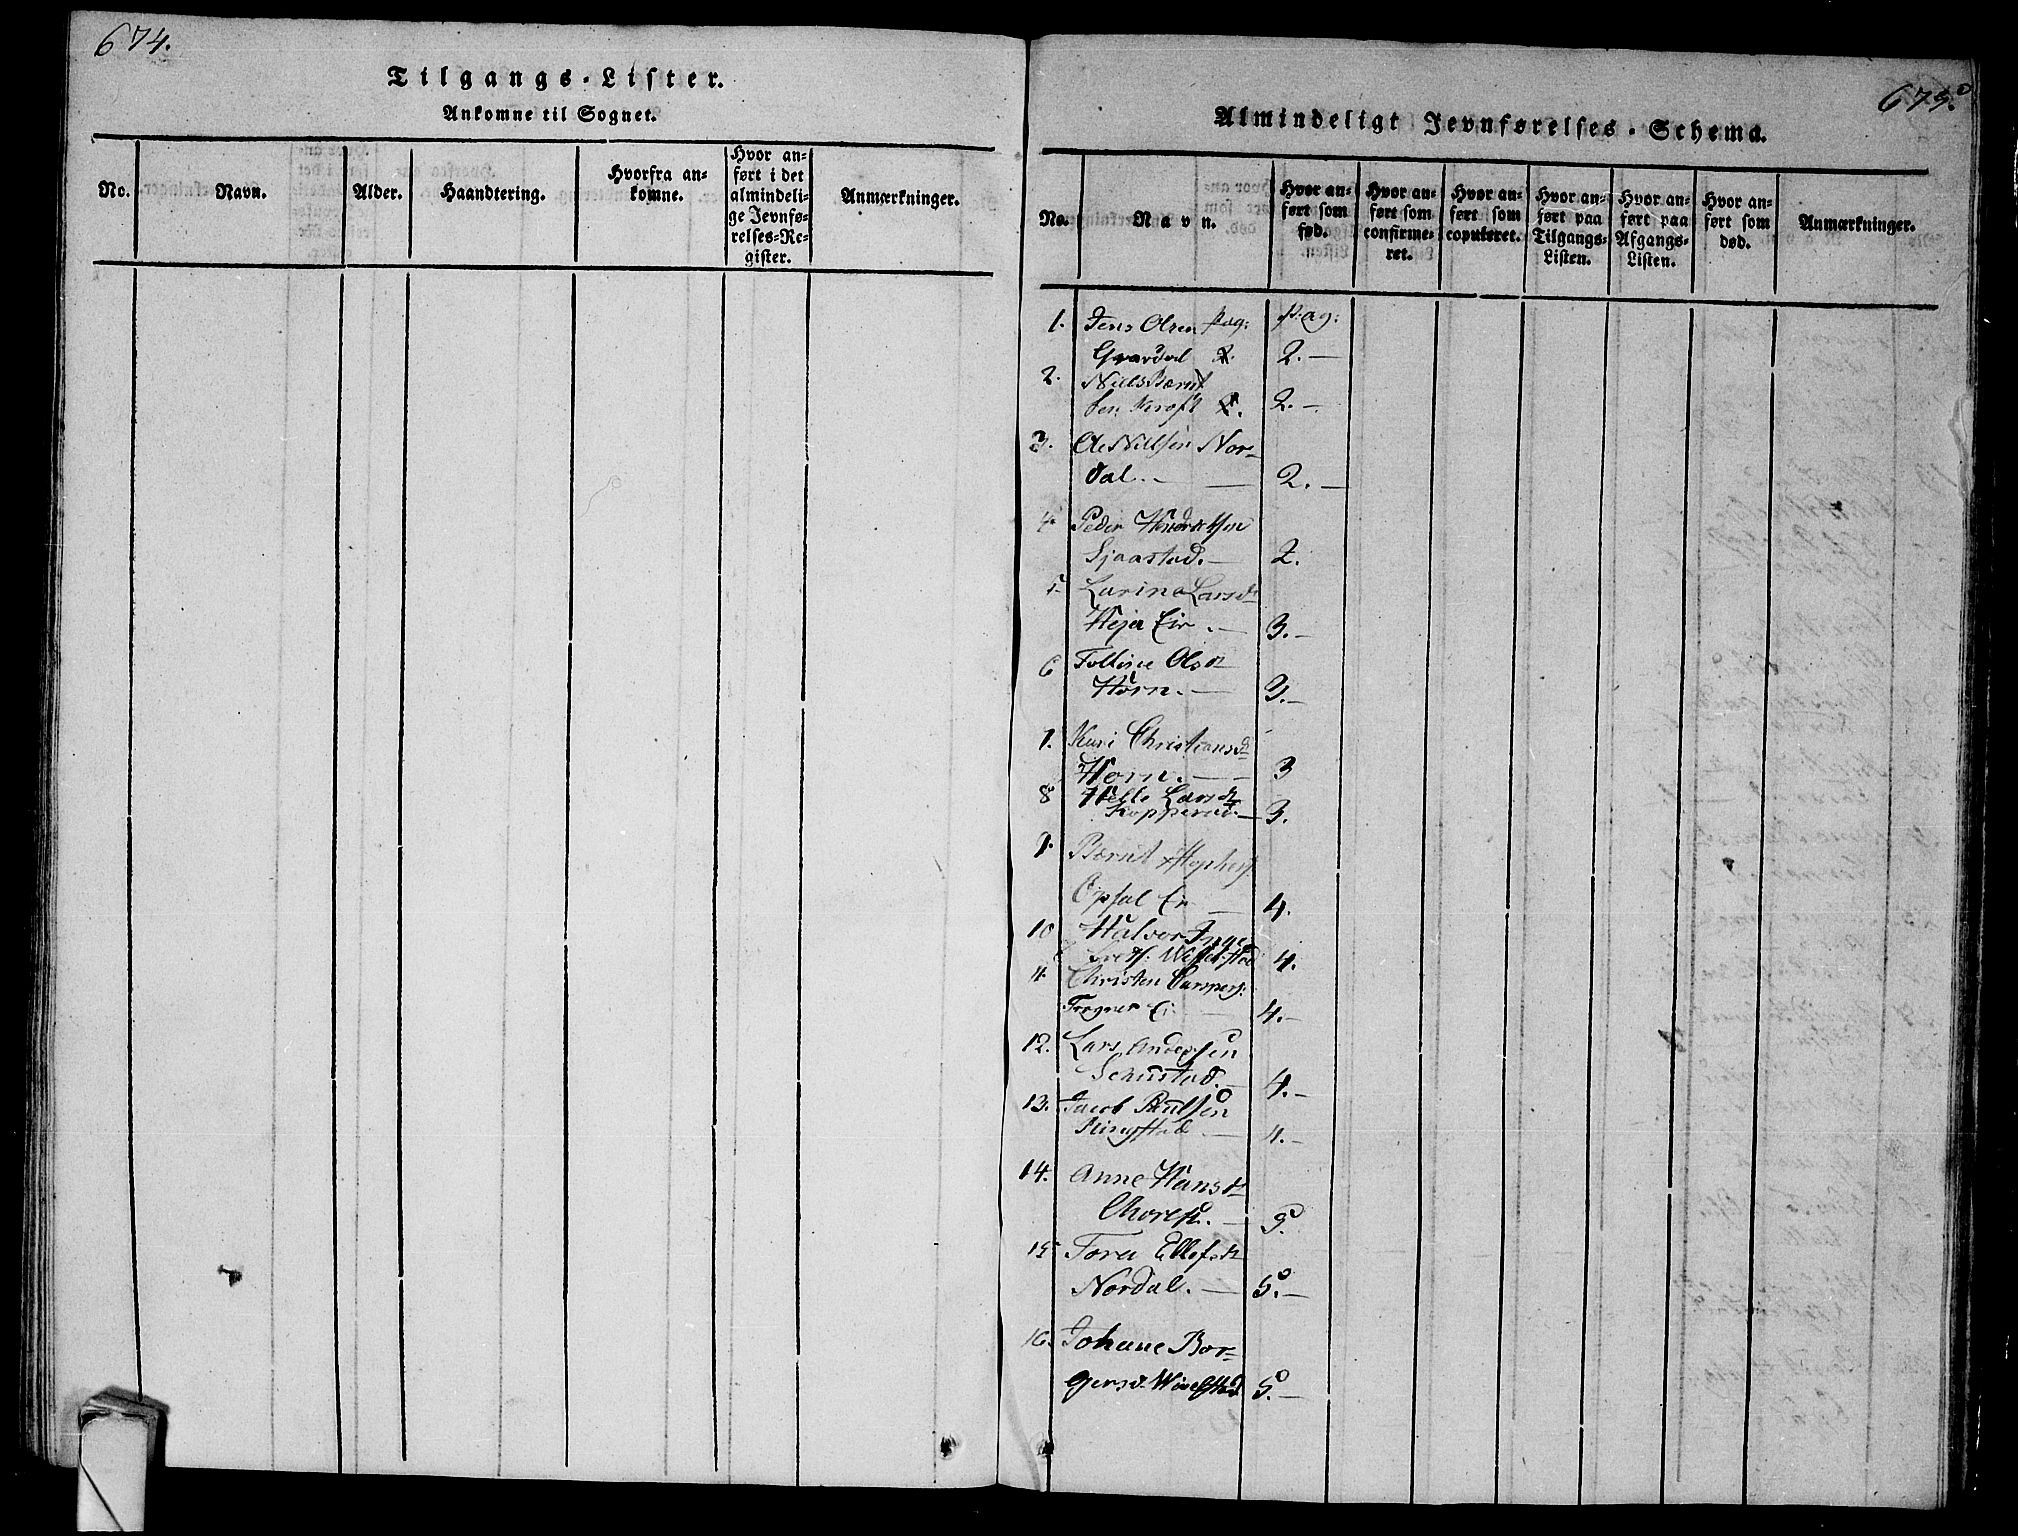 674.
Tilgangs-Lister.
Ankomne til Sognet.
No.
Navn.
Alder.
Haandtering.
Hvorfra an-
komne.
Hvor an-
ført i det
almindeli-
ge Jevnfø-
relses-Re-
gister.
Anmærkninger.
675.
Almindeligt Jevnførelses-Schema.
No.
Navn.
Hvor an-
ført som
fød.
Hvor an-
ført som
confirme-
ret.
Hvor an-
ført som
copuleret.
Hvor an-
ført paa
Tilgangs-
Listen.
Hvor an-
ført paa
Afgangs-
Listen.
Hvor an-
ført som
død.
Anmærkninger.
1. Jens Olsen pag: Pag:
2.—
2. Niels Bernt
sen 2.—
3. Ole Nielsen Nor-
dal.— 2.—
4. Peder Hendrichsen
Sjaastad.— 2.
5. Larina Larsd
Eir .— 3.—
6 Olsd
Horn.— 3.—
7. Kari Christiansd
Horn.— 3
8 Helle Larsd
Kopperud.— 3.
9. Bernt
Opsal Eir 4.
10 Halvor Inge
4.
11. Christen Caspers:
Frogner Ei 4.—
12. Lars Andersen
Schustad.— 4.—
13. Jacob Paulsen
Ringstad — 4.—
14. Anne Hansd
5.
15 Torer Ellefsd
Nordal.— 5.—
16. Johane Bor-
gersd. 5.—